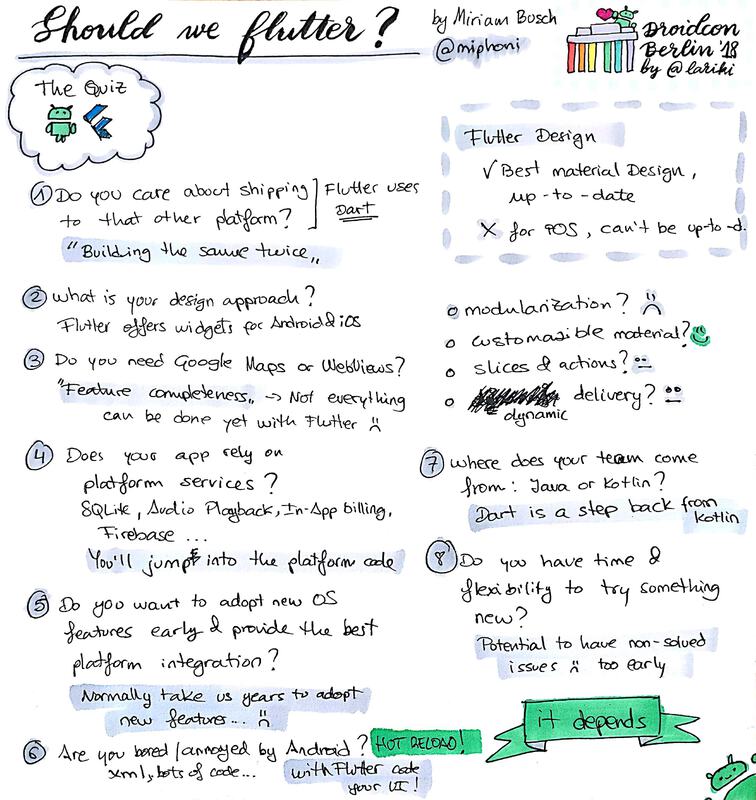 Should we flutter?
by Miriam Busch
@miphoni
Droidcon
Berlin '18
by @lariki
The Quiz
1 Do you care about shipping
to that other platform?
Flutter uses
Dart
"Building the same twice„
2 What is your design approach?
Flutter offers widgets for Android & iOS
3 Do you need Google Maps or WebViews?
"Feature completeness„ → Not everything
can be done yet with Flutter :(
4 Does your app rely on
platform services?
SQLite, Audio Playback, In-App billing,
Firebase ...
You'll jump into the platform code
5 Do you want to adopt new OS
features early & provide the best
platform integration?
Normally take us years to adopt
new features... :(
6 Are you bored/annoyed by Android? HOT RELOAD!
xml, lots of code...
with Flutter code
your UI!
Flutter Design
✓ Best material Design,
up-to-date
X for iOS, can't be up-to-d.
o modularization? :(
o customasible material? :)
o slices & actions? :|
o delivery? :|
dynamic
7 Where does your team come
from: Java or Kotlin?
Dart is a step back from
Kotlin
8 Do you have time &
flexibility to try something
new?
Potential to have non-solved
issues :( too early
it depends